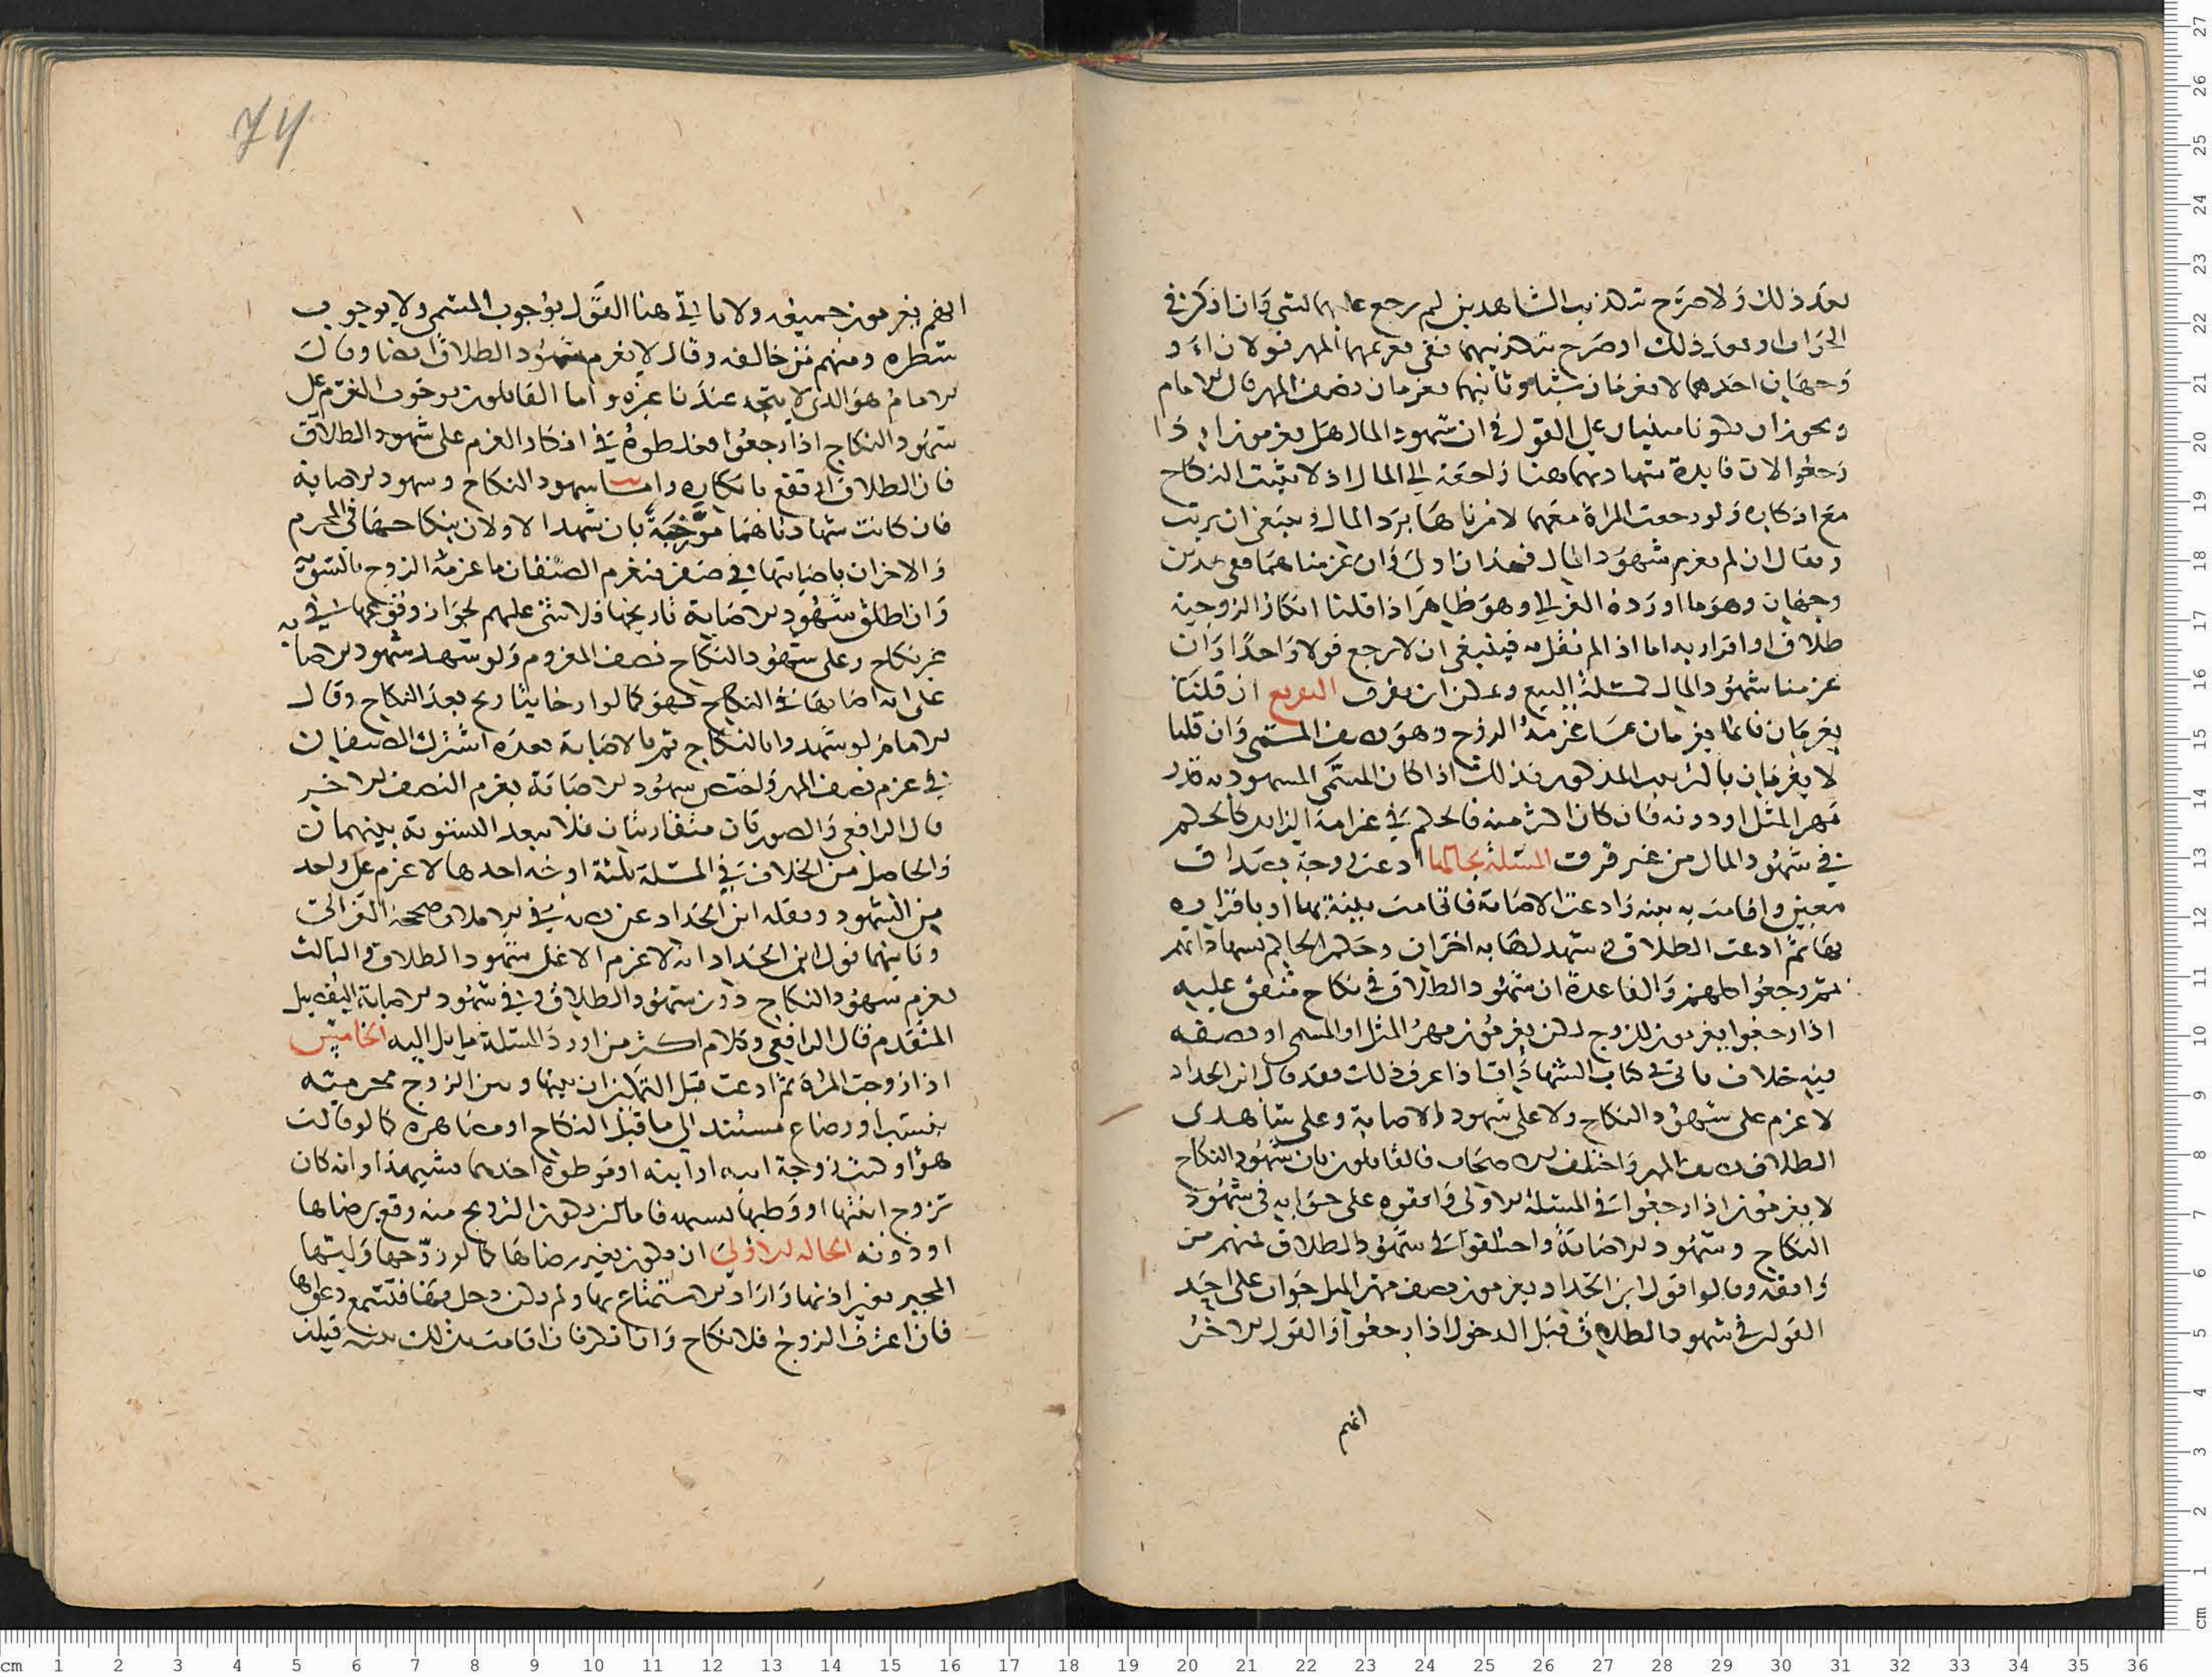 بعد ذلك ولا صرح بتكذيب الشاهدين لم يرجع عليهما بشي وان اذكرني
الجواب او بعد ذلك او صرح بتكذيبهما ففي تغريمهما المهر قولان او
وجهان احدهما لا يغرمان شيا وثانيهما يغرمان نصف المهر قال الامام
ويجوز ان يكونا مبنيان على القول في ان شهود المال هل يغرمون اذا
رجعوا لان فايدة شهادتهما هنا راجعة الى المال اذ لا يثبت النكاح
مع انكاره ولو رجعت المراة معهما لامرناها برد المال وينبغي ان يرتب
ويقال ان لم يغرم شهود المال فهذان اولى وان غرمناهما ففي هذين
وجهان وهو ما اورده الغزالي وهو ظاهر اذا قلنا انكار الزوجية
طلاق او اقرار به اما اذا لم نقل به فينبغي ان لا يرجع قولا واحدا وان
غرمنا شهود المال لمسئلة البيع ويمكن ان يفرق التفريع ان قلنا
يغرمان فانما يغرمان ما غرمه الزوج وهو نصف المسمى وان قلنا
لا يغرمان بالترتيب المذكور فذلك اذا كان المسمى المشهود به قدر
مهر المثل او دونه فان كان اكثر منه فالحكم في غرامة الزايد كالحكم
في شهود المال من غير فرق المسئلة بحالها ادعت زوجة بصداق
معين واقامت به بينة وادعت الاصابة فاقامت بينة بها او باقراره
بها ثم ادعت الطلاق وشهد لها به اخران وحكم الحاكم بشهاداتهم
ثم رجعوا كلهم والقاعدة ان شهود الطلاق في نكاح متفق عليه
اذا رجعوا يغرمون للزوج لكن يغرمون مهر المثل او المسمى او نصفه
فيه خلاف ياتي في كتاب الشهادات اذا عرف ذلك فقد قال ابن الحداد
لا غرم على شهود النكاح ولا على شهود الاصابة وعلى شاهدي
الطلاق نصف المهر واختلف الاصحاب فالقايلون بان شهود النكاح
لا يغرمون اذا رجعوا في المسئلة الاولى وافقوه على جوابه في شهود
النكاح وشهود الاصابة واختلفوا في شهود الطلاق فمنهم من
وافقه وقالوا قول ابن الحداد يغرمون نصف مهر المثل جواب على احد
القولين في شهود الطلاق قبل الدخول اذا رجعوا والقول الاخر
انهم
74
انهم يغرمون جميعه ولا ياتي هنا القول بوجوب المسمى ولا بوجوب
شطره ومنهم من خالفه وقال لا يغرم شهود الطلاق ايضا وقال
الامام هو الذي لا يتجه عندنا غيره واما القايلون بوجوب الغرم على
شهود النكاح اذا رجعوا فغلطوه في انكار الغرم على شهود الطلاق
فان الطلاق لم يقع بانكاره واما شهود النكاح وشهود الاصابة
فان كانت شهادتاهما مورخة بان شهدا الاولان بنكاحها في المحرم
والاخران باصابتها في صفر فيغرم الصنفان ما غرمه الزوج بالسوية
وان اطلق شهود الاصابة تاريخها فلا شي عليهم لجواز وقوعها في
غير نكاح وعلى شهود النكاح نصف المغروم ولو شهد شهود الاصابة
على انه اصابها في النكاح فهو كما لو ارخا بتاريخ بعد النكاح وقال
الامام لو شهدوا بالنكاح ثم بالاصابة بعده اشترك الصنفان
في غرم نصف المهر واختص شهود الاصابة بغرم النصف الاخر
قال الرافعي والصورتان متقاربتان فلا يبعد التسوية بينهما
والحاصل من الخلاف في المسئلة ثلثة اوجه احدها لا غرم على واحد
من الشهود ونقله ابن الحداد عن نصه في الاملا وصححه الغزالي
وثانيهما قول ابن الحداد انه لا غرم الا على شهود الطلاق والثالث
يغرم شهود النكاح دون شهود الطلاق وفي شهود الاصابة التفصيل
المتقدم قال الرافعي وكلام اكثر من اورد المسئلة مايل اليه الخامس
اذا زوجت المراة ثم ادعت قبل التمكين ان بينها وبين الزوج محرمية
بنسب او رضاع مستند الى ما قبل النكاح او مصاهرة كما لو قالت
هو او كنت زوجة ابيه او ابنه او موطوة احدهما بشبهة او انه كان
تزوج ابنتها او وطيها بشبهة فاما ان يكون التزويج منه وقع برضاها
او دونه الحالة الاولى ان يكون بغير رضاها كما لو زوجها وليها
المجبر بغير اذنها واراد الاستمتاع بها ولم يكن دخل بها فتسمع دعواها
فان اعترف الزوج فلا نكاح وان انكر فان اقامت بذلك بينة قبلت